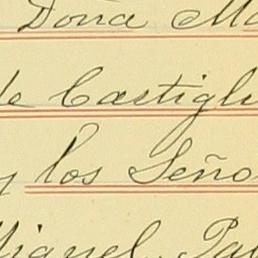 Doña Ma
de Castigli
y los Seño
Miguel Pa